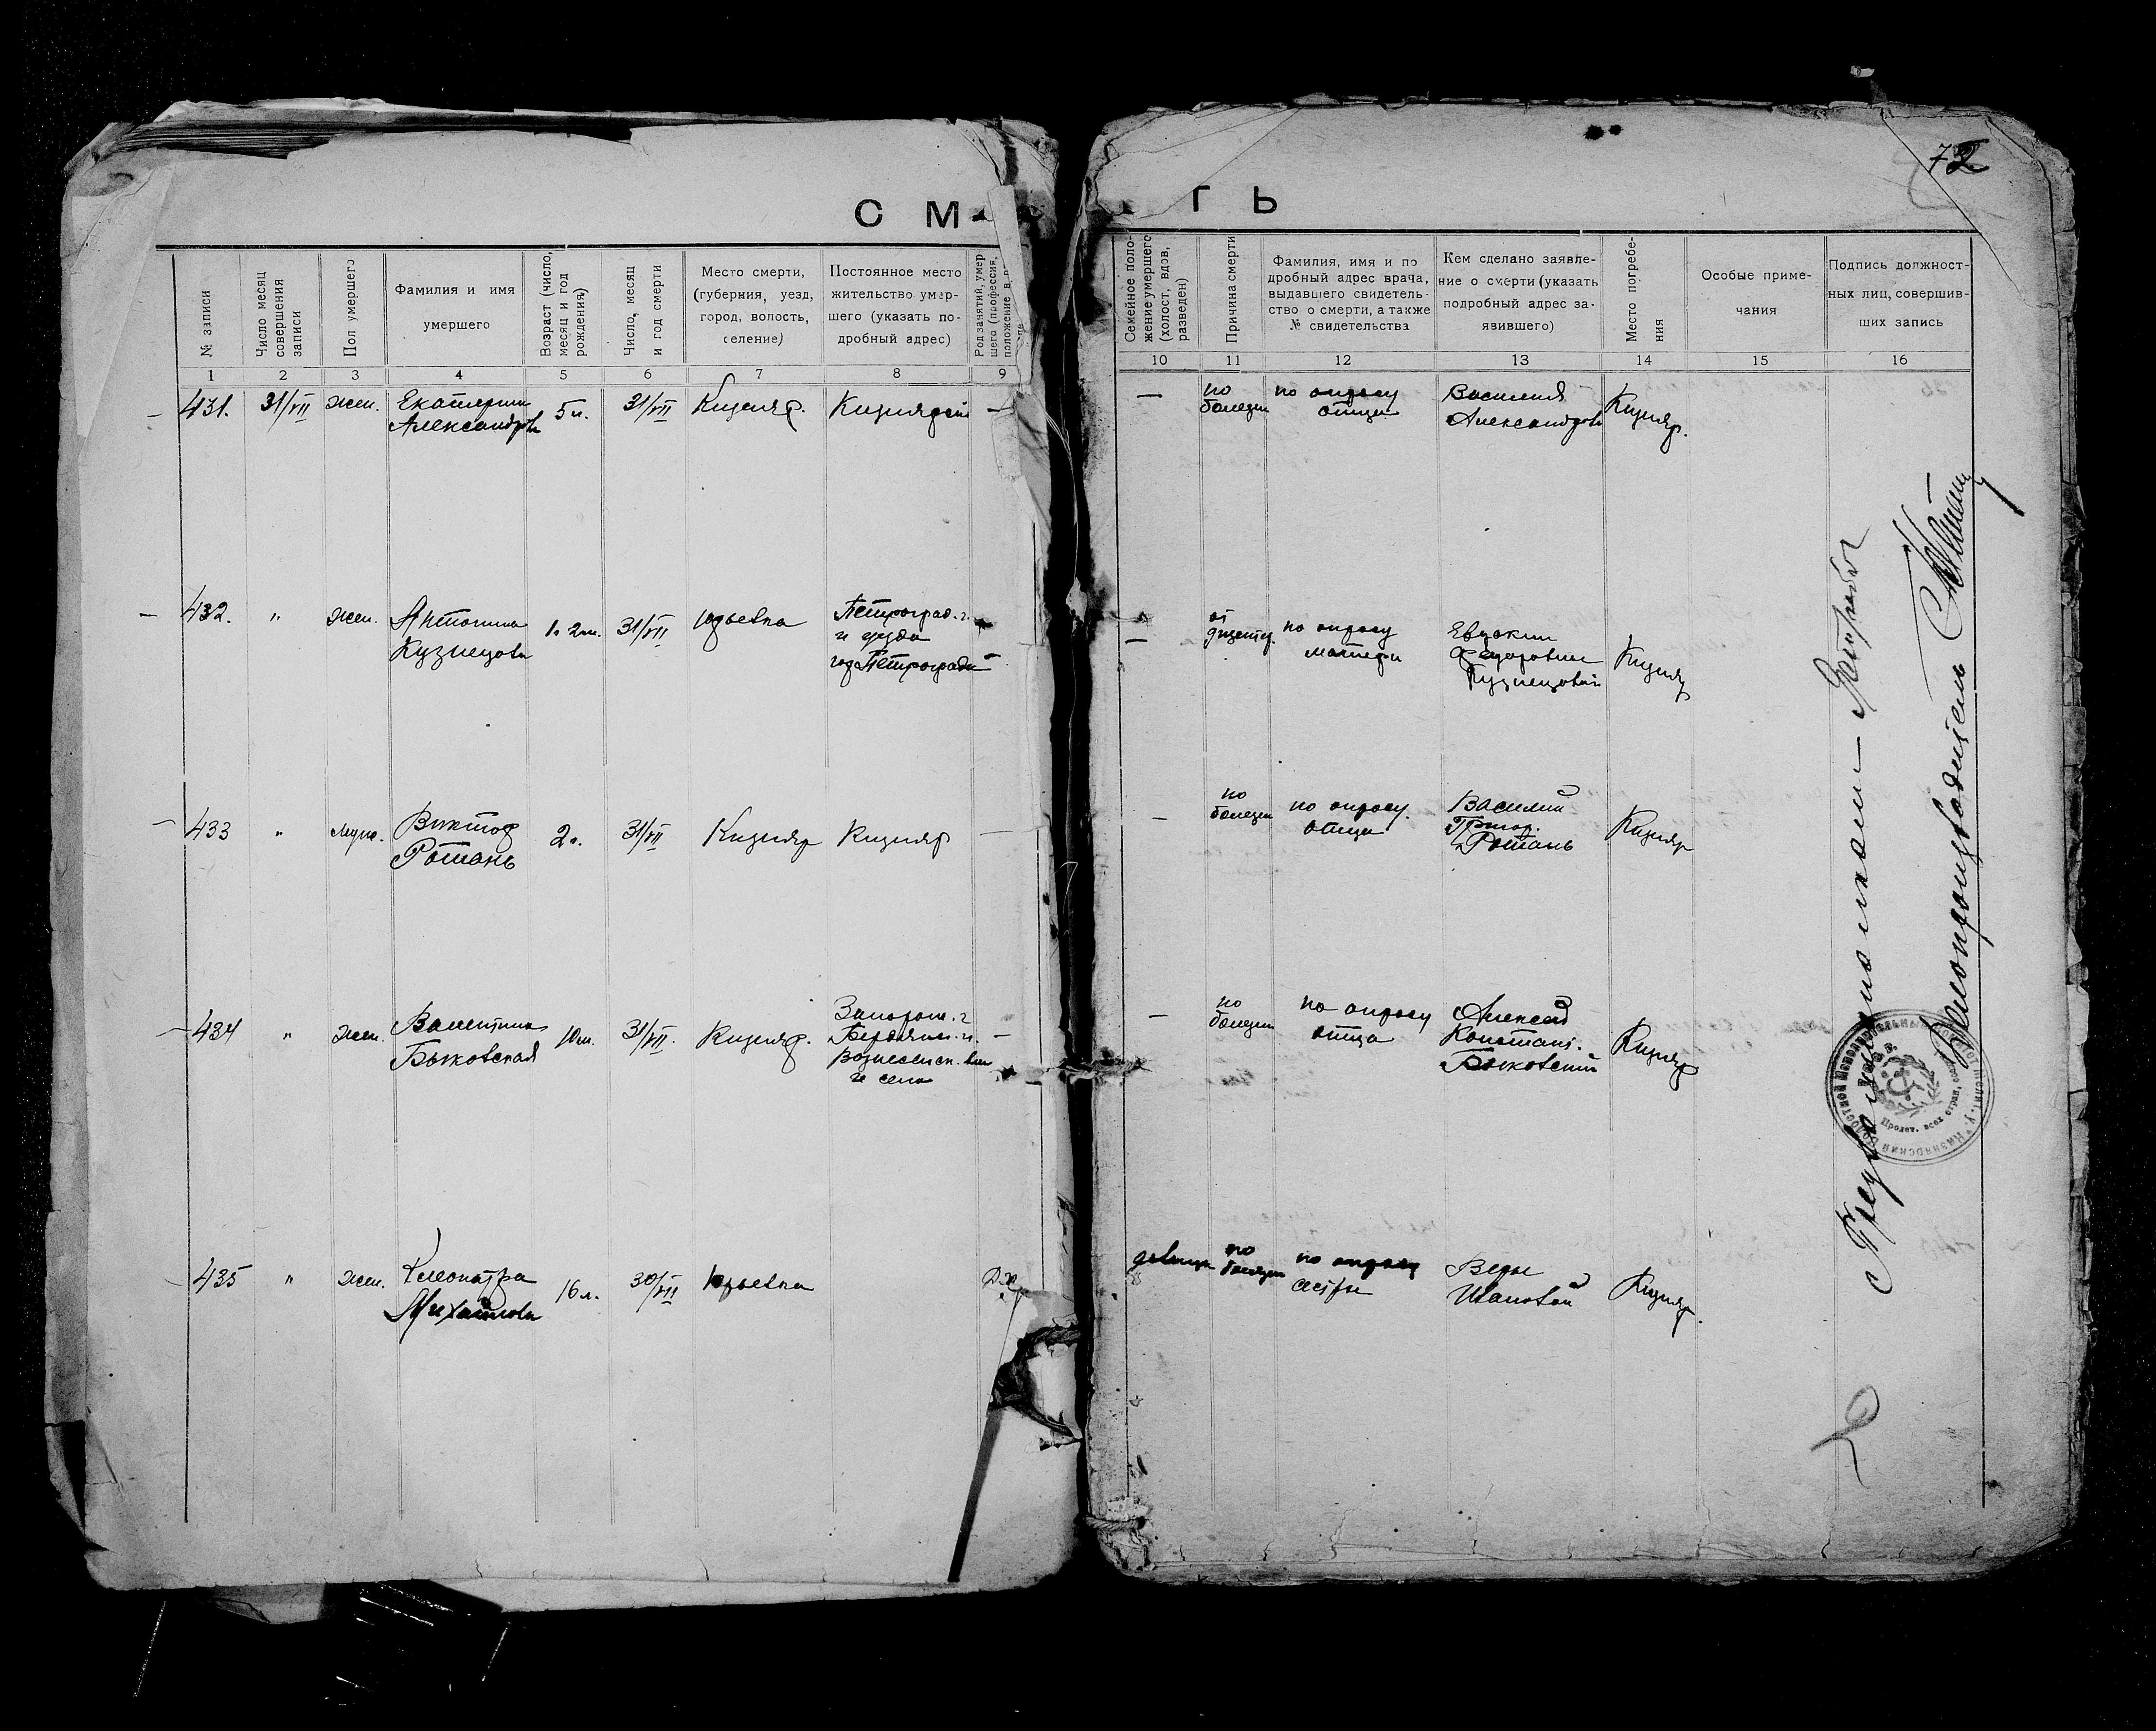 72
С М
Т Ь
№ записи
Число месяц
совершения
записи
Пол умершего
Фамилия и имя
умершего
Возраст (число,
месяц и год
рождения)
Число, месяц
и год смерти
Место смерти,
(губерния, уезд,
город, волость,
селение)
Постоянное место
жительство умер-
шего (указать по-
дробный адрес)
Род занятий, умер-
шего (профессия,
положение в
Семейное поло-
жение умершего
(холост, вдов,
разведен)
Причина смерти
Фамилия, имя и по
дробный адрес врача,
выдавшего свидетель-
ство о смерти, а также
№ свидетельства
Кем сделано заявле-
ние о смерти (указать
подробный адрес за-
явившего)
Место погребе-
ния
Особые приме-
чания
Подпись должност-
ных лиц, совершив-
ших запись
1 2 3 4 5 6 7 8 9 10 11 12 13 14 15 16
431. 31/VII жен. Екатерина
Александрова
5 м. 31/VII Кизияр. —
—
по
болезни
по опросу
отца
Василия
Александров
Кизияр.
432. " жен. Антонина
Кузнецова
31/VII Юзьевка
Петроград. г.
и уезда
гор Петроград
—
от
дизентер.
по опросу
матери
Федоровны
Кузнецовой
Кизияр
433 " Муж. Виктор
Ротань
2 г. 31/VII Кизияр Кизияр —
—
по
болезни
по опросу.
отца
Василий
Григор.
Ротань
Кизияр
434 " жен. Валентина
Быковская
10 м. 31/VII. Кизияр.
Запорож. г
Бердянск. у.
Вознесенск. вол
и села
—
—
по
болезни
по опросу
отца
Алексей
Констант.
Быковский
Кизияр
435 " жен. Клеопатра
Михайлова
16 л. 30/VII Юзьевка
девица
по
болезни
по опросу
сестры
Веры
Шаповой
Кизияр.
Делопроизводитель
Пролет. всех стран, соед